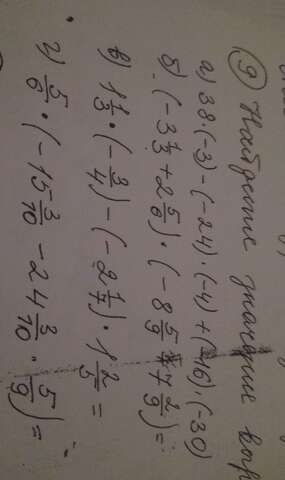 9) Найдите значение выр
а) 38·(-3)-(-24)·(-4)+(-16)·(-30)
б) (-3 1/3 + 2 5/6)·(-8 5/9 + 7 2/9)=
в) 1 1/3·(-3/4)-(-2 1/7)·1 2/5=
г) 5/6·(-15 3/10 - 24 3/10 · 5/9)=